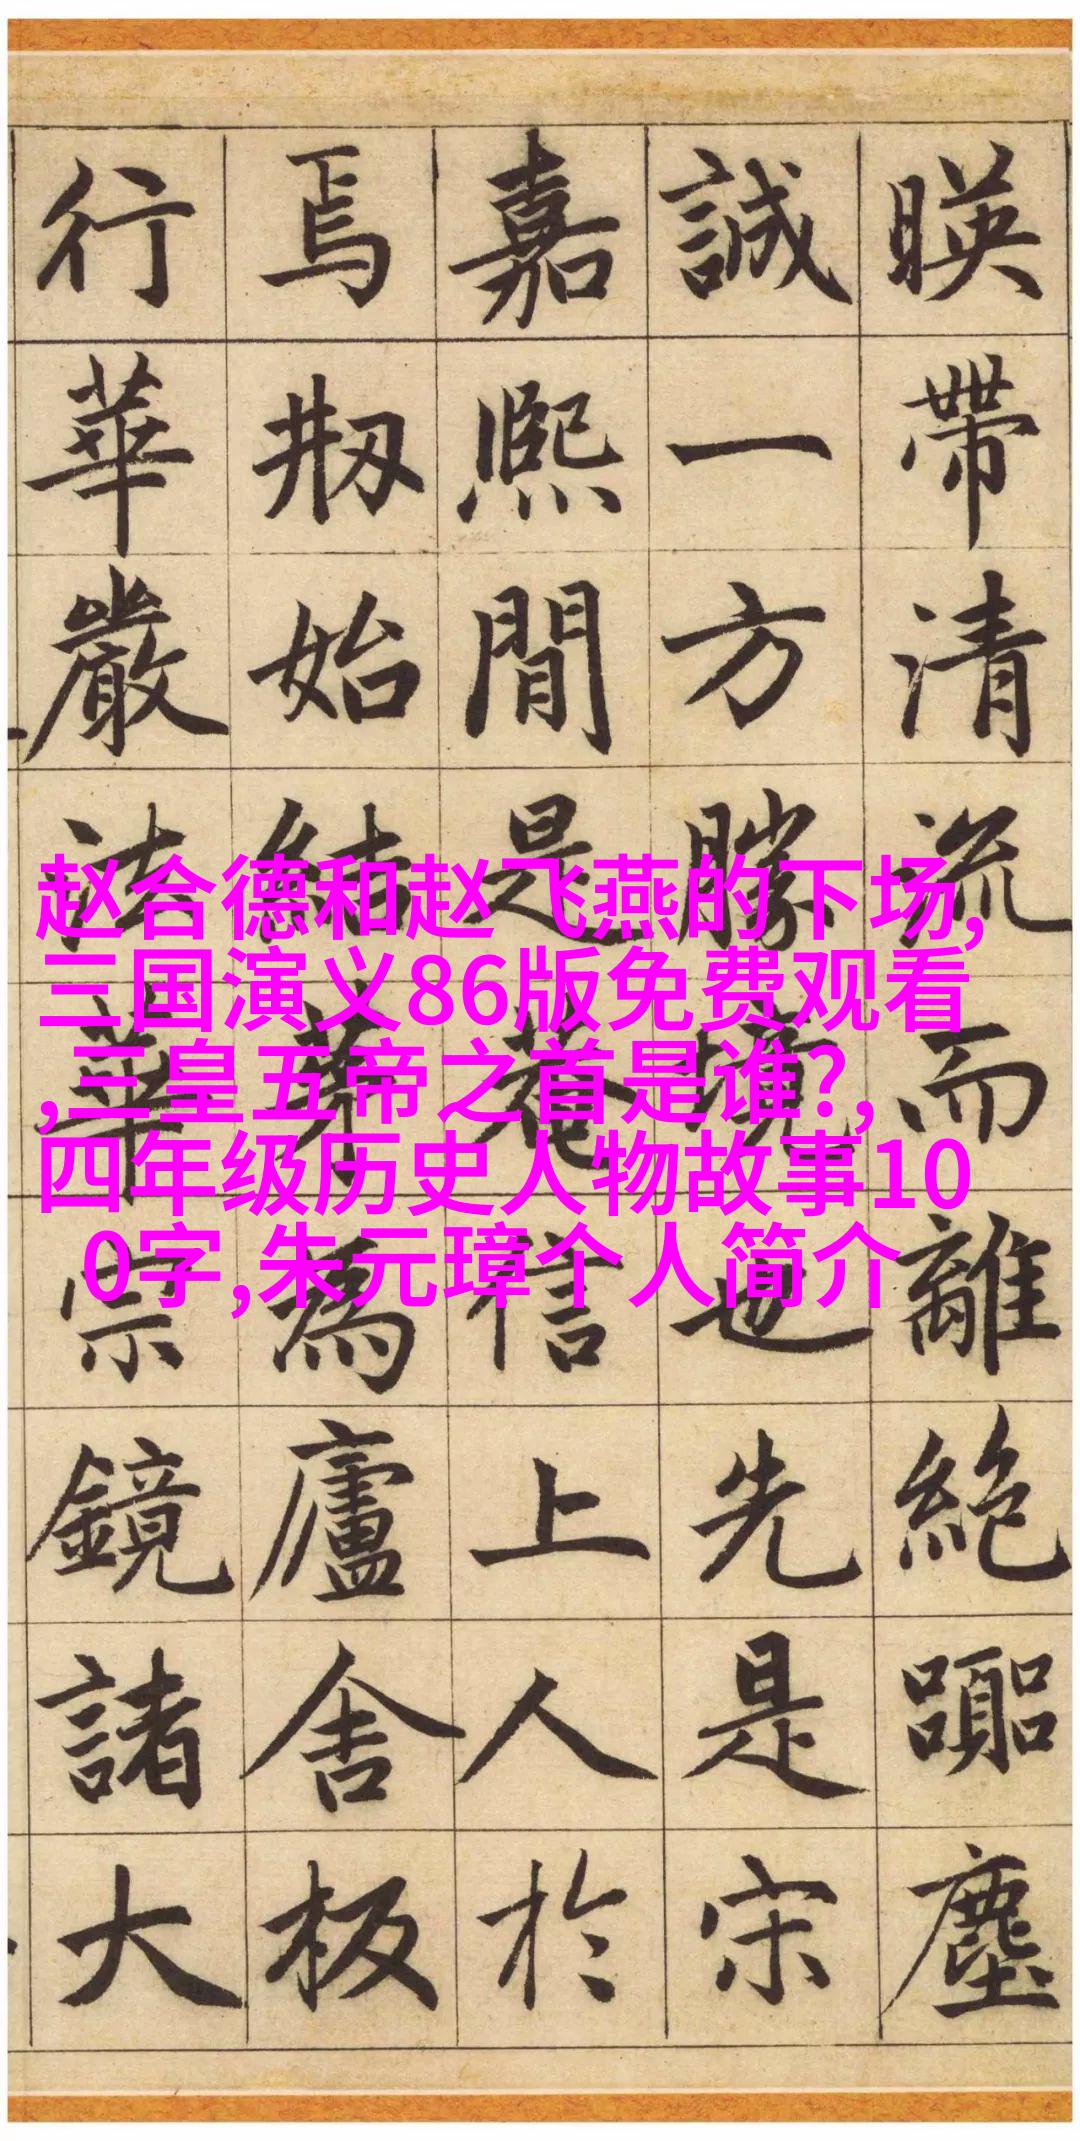 暎帶清流而離絶嚻塵
誠一方勝境也先是宋
嘉熙間是菴信上人於
焉刱始結茅為廬舍板
行華嚴法華宗鏡諸大
赵合德和赵飞燕的下场,
三国演义86版免费观看
,三皇五帝之首是谁?,
四年级历史人物故事10
0字,朱元璋个人简介